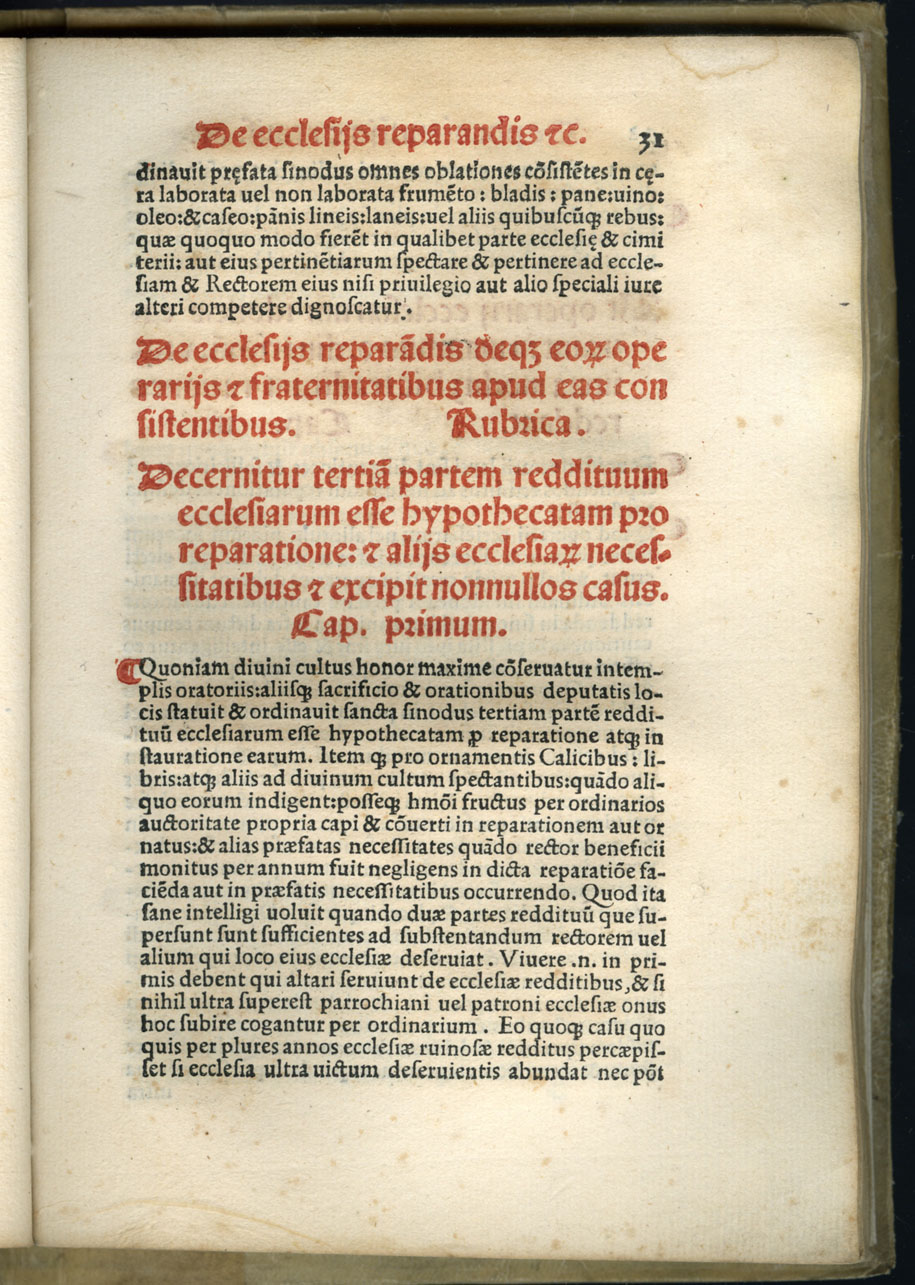 De ecclesijs reparandis ⁊c. 31
dinauit pręfata sinodus omnes oblationes cõsistẽtes in cę-
ra laborata uel non laborata frumẽto : bladis : pane:uino:
oleo:&caseo:pãnis lineis:laneis:uel aliis quibuscũqꝫ rebus:
quæ quoquo modo fierẽt in qualibet parte ecclesię & cimi
terii: aut eius pertinẽtiarum spectare & pertinere ad eccle-
siam & Rectorem eius nisi priuilegio aut alio speciali iure
alteri competere dignoscatur.
De ecclesijs reparãdis deqꝫ eoꝝ ope
rarijs ⁊ fraternitatibus apud eas con
sistentibus. Rubrica.
Decernitur tertiã partem reddituum
ecclesiarum esse hypothecatam pro
reparatione: ⁊ alijs ecclesiaꝝ neces-
sitatibus ⁊ excipit nonnullos casus.
Cap. primum.
¶Quoniam diuini cultus honor maxime cõseruatur in tem-
plis oratoriis:aliisqꝫ sacrificio & orationibus deputatis lo-
cis statuit & ordinauit sancta sinodus tertiam partẽ reddi-
tuũ ecclesiarum esse hypothecatam ꝓ reparatione atqꝫ in
stauratione earum. Item qꝫ pro ornamentis Calicibus : li-
bris:atqꝫ aliis ad diuinum cultum spectantibus:quãdo ali-
quo eorum indigent:posseqꝫ hmõi fructus per ordinarios
auctoritate propria capi & cõuerti in reparationem aut or
natus:& alias præfatas necessitates quãdo rector beneficii
monitus per annum fuit negligens in dicta reparatiõe fa-
ciẽda aut in præfatis necessitatibus occurrendo. Quod ita
sane intelligi uoluit quando duæ partes reddituũ que su-
persunt sunt sufficientes ad substentandum rectorem uel
alium qui loco eius ecclesiæ deseruiat. Viuere .n. in pri-
mis debent qui altari seruiunt de ecclesiæ redditibus,& si
nihil ultra superest parrochiani uel patroni ecclesiæ onus
hoc subire cogantur per ordinarium. Eo quoqꝫ casu quo
quis per plures annos ecclesiæ ruinosæ redditus percæpis-
set si ecclesia ultra uictum deseruientis abundat nec põt